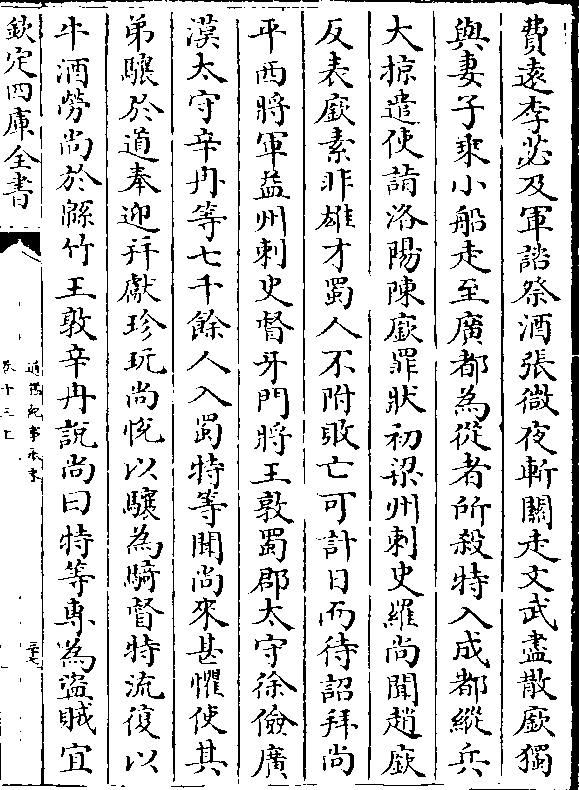 費遠李苾及軍諮祭酒張微夜斬關走文武盡散廞獨
與妻子乘小船走至廣都為從者所殺特入成都縱兵
大掠遣使詣洛陽陳廞罪狀初梁州刺史羅尚聞趙廞
反表廞素非雄才蜀人不附敗亡可計日而待詔拜尚
平西將軍益州刺史督牙門將王敦蜀郡太守徐儉廣
漢太守辛冉等七千餘人入蜀特等聞尚來甚懼使其
弟驤於道奉迎拜獻珍玩尚悅以驤為騎督特流復以
牛酒勞尚於緜竹王敦辛冉說尚曰特等專為盜賊宜
欽定四庫全書
通鑑紀事本末
卷十三上